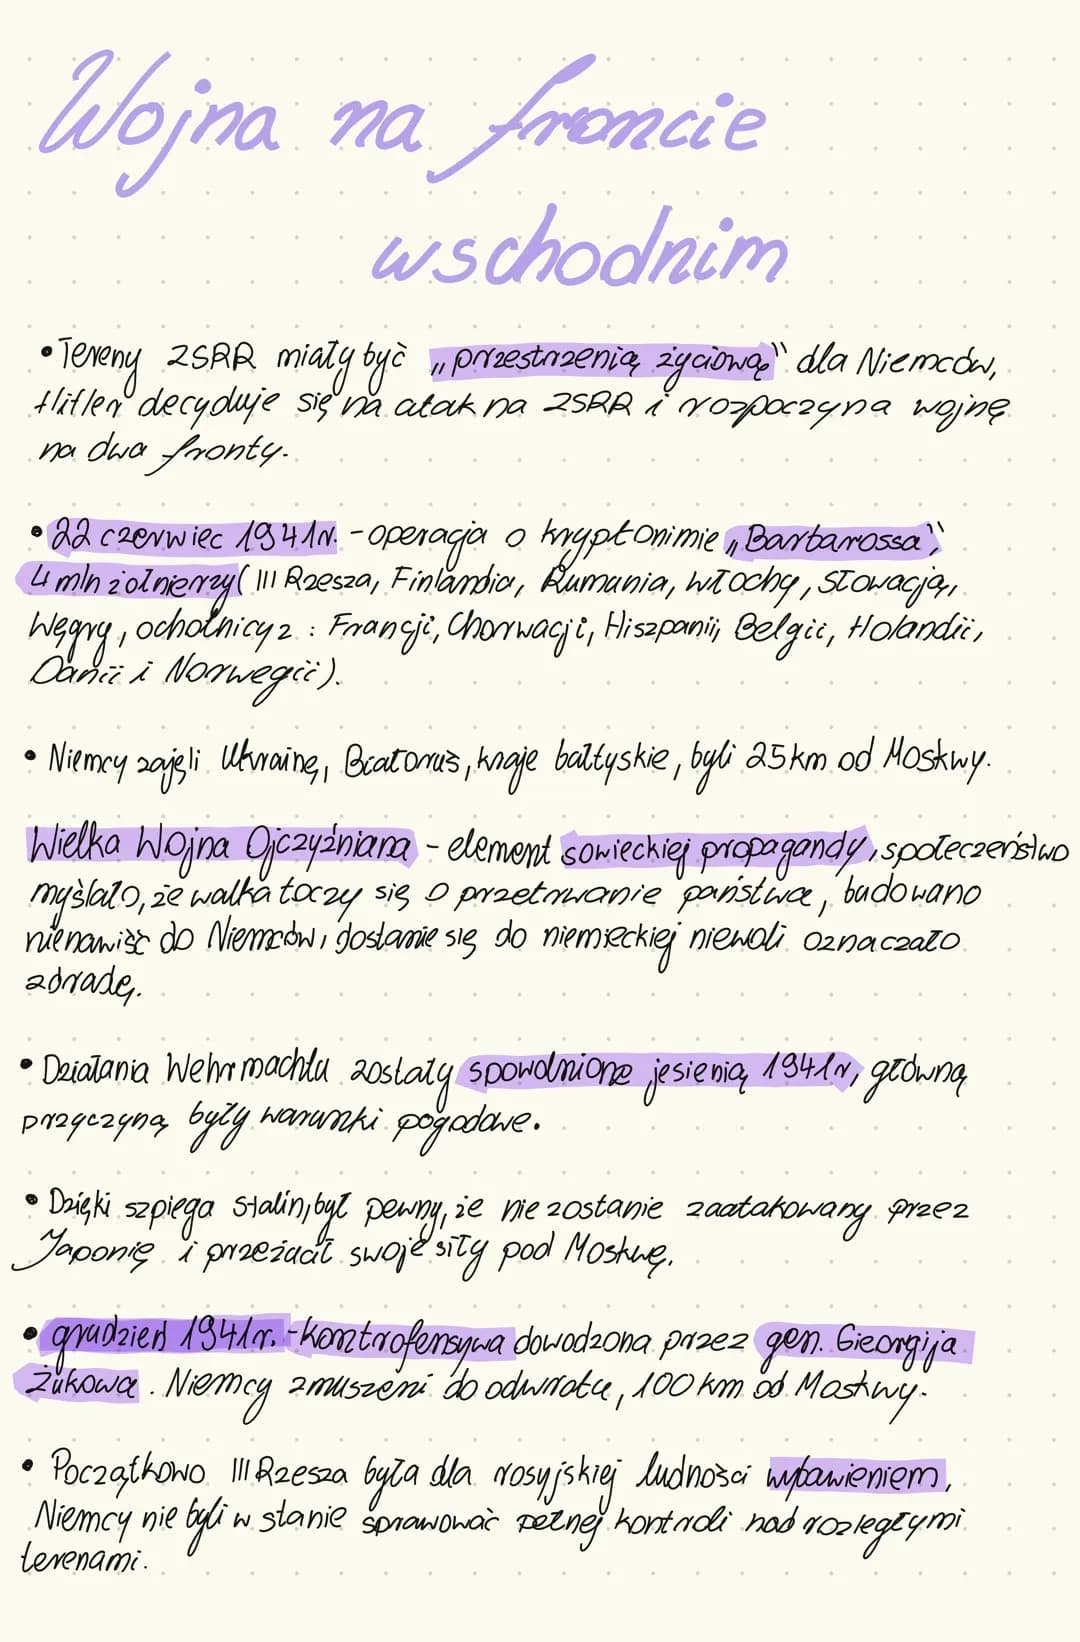 Wojna na froncie
wschodnim
• Tereny ZSRR miały być „przestrzenią życiową" dla Niemców,
Hitler decyduje się na atak na ZSRR i rozpoczyna wojnę
na dwa fronty.
• 22 czerwiec 1941r. - operacja o kryptonimie „Barbarossa",
4 mln żołnierzy ( III Rzesza, Finlandia, Rumunia, Włochy, Słowacja,
Węgry, ochotnicy z : Francji, Chorwacji, Hiszpanii, Belgii, Holandii,
Danii i Norwegii).
• Niemcy zajęli Ukrainę, Białoruś, kraje bałtyskie, byli 25 km od Moskwy.
Wielka Wojna Ojczyźniana - element sowieckiej propagandy, społeczeństwo
myślało, że walka toczy się o przetrwanie państwa, budowano
nienawiść do Niemców, dostanie się do niemieckiej niewoli oznaczało
zdradę.
• Działania Wehrmachtu zostały spowolnione jesienią 1941r, główną
przyczyną były warunki pogodowe.
• Dzięki szpiega Stalin, był pewny, że nie zostanie zaatakowany przez
Japonię i przeżucił swoje siły pod Moskwę.
• grudzień 1941r. - kontrofensywa dowodzona przez gen. Gieorgija
Żukowa. Niemcy zmuszeni do odwrotu, 100 km od Moskwy.
• Początkowo III Rzesza była dla rosyjskiej ludności wybawieniem,
Niemcy nie byli w stanie sprawować pełnej kontroli nad rozległymi
terenami.